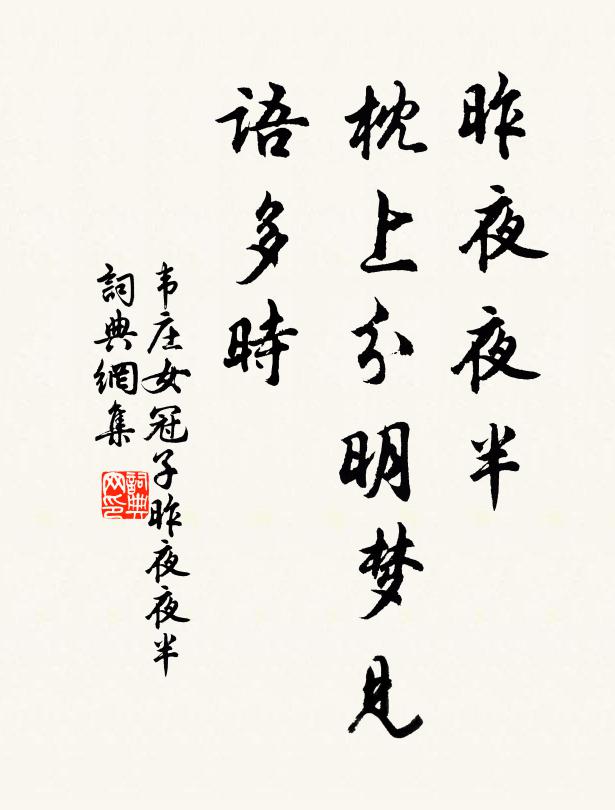 昨夜夜半
枕上分明梦見
語多時
韦庄女冠子昨夜夜半
詞典網集
詞典网印